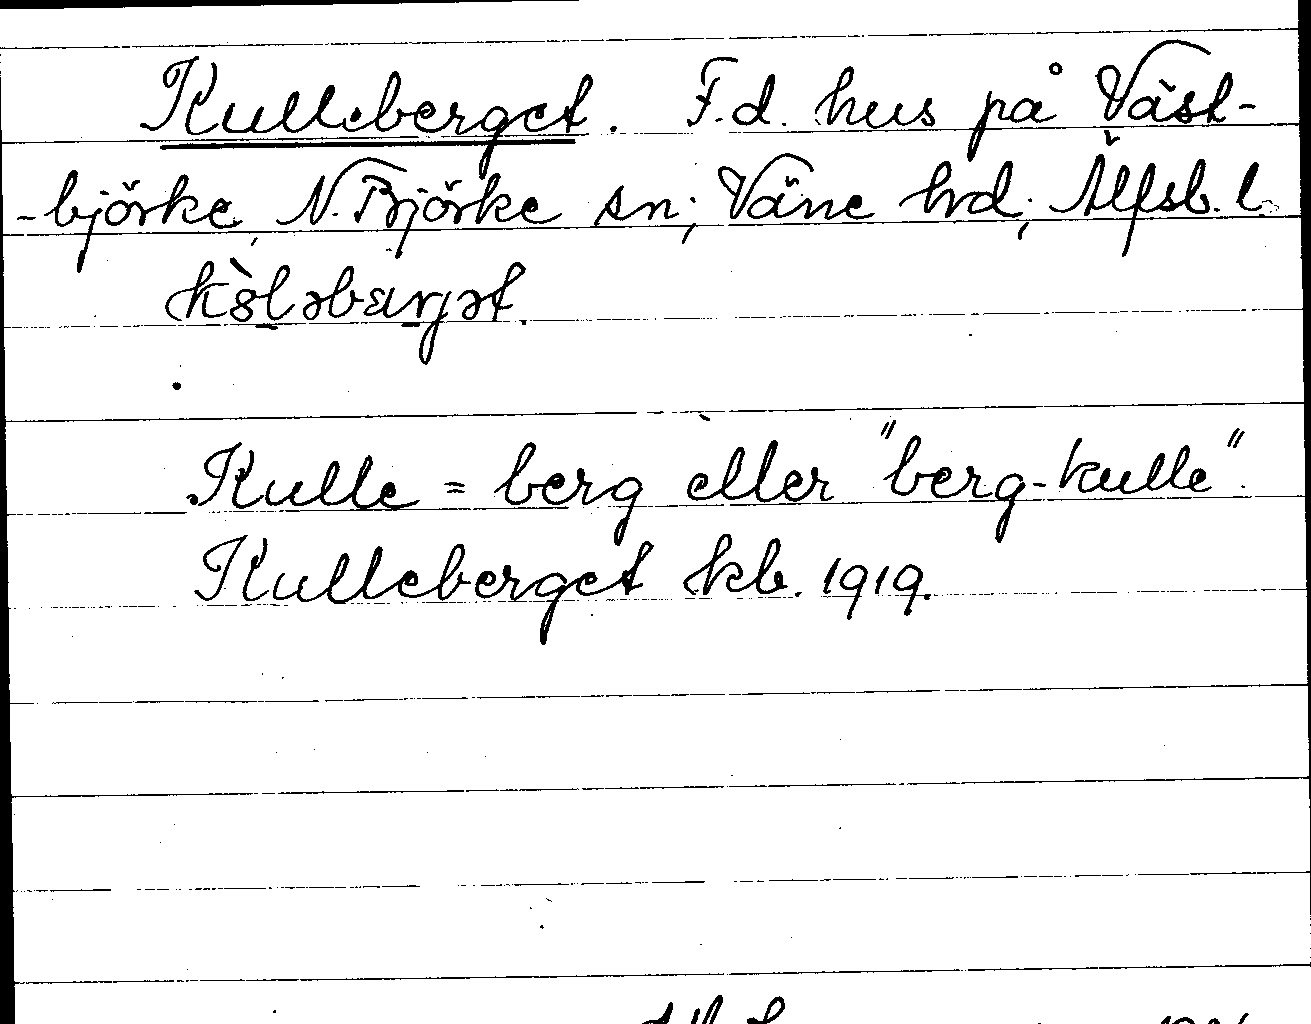 Kulleberget. F.d. hus på Väst-
-björke, N. Björke sn; Väne hd; Älfsb. l.
Kulle = berg eller "berg-kulle".
Kulleberget kb. 1919.